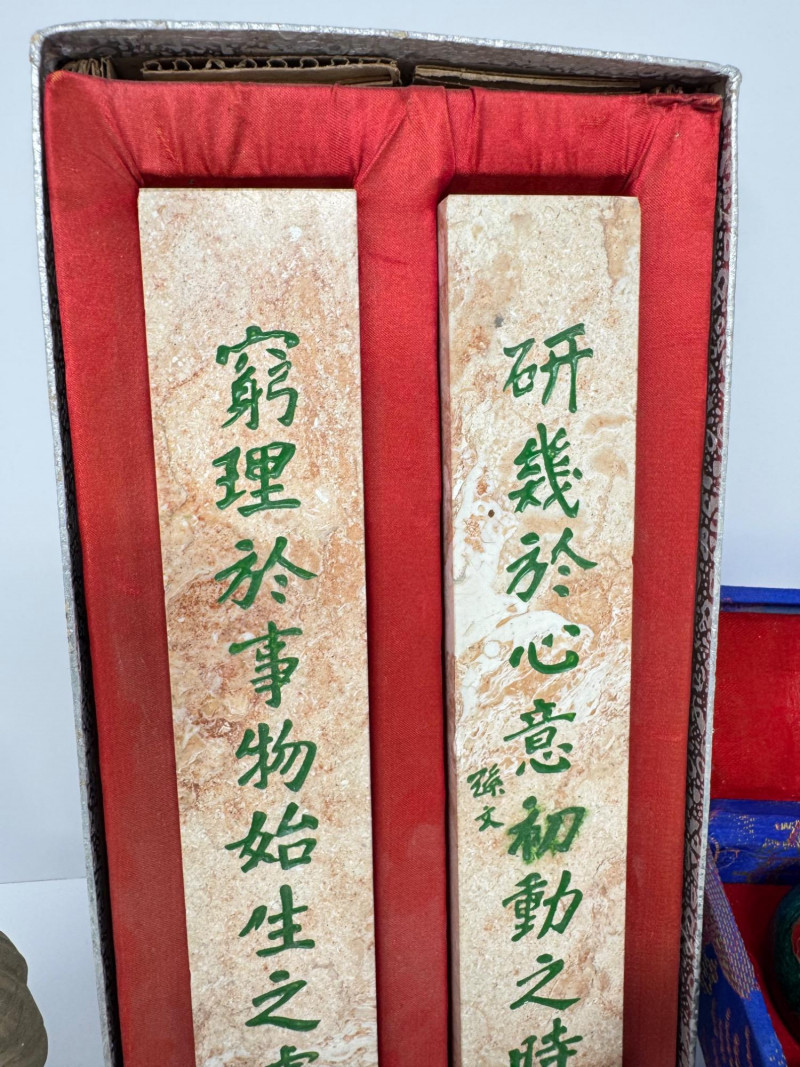 窮理於事物始生之
研幾於心意初動之時
孫文